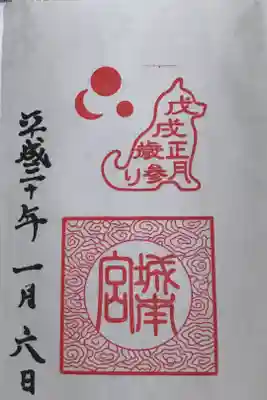 戊戌正月
歳参り
城南宮
平成三十年 一月六日